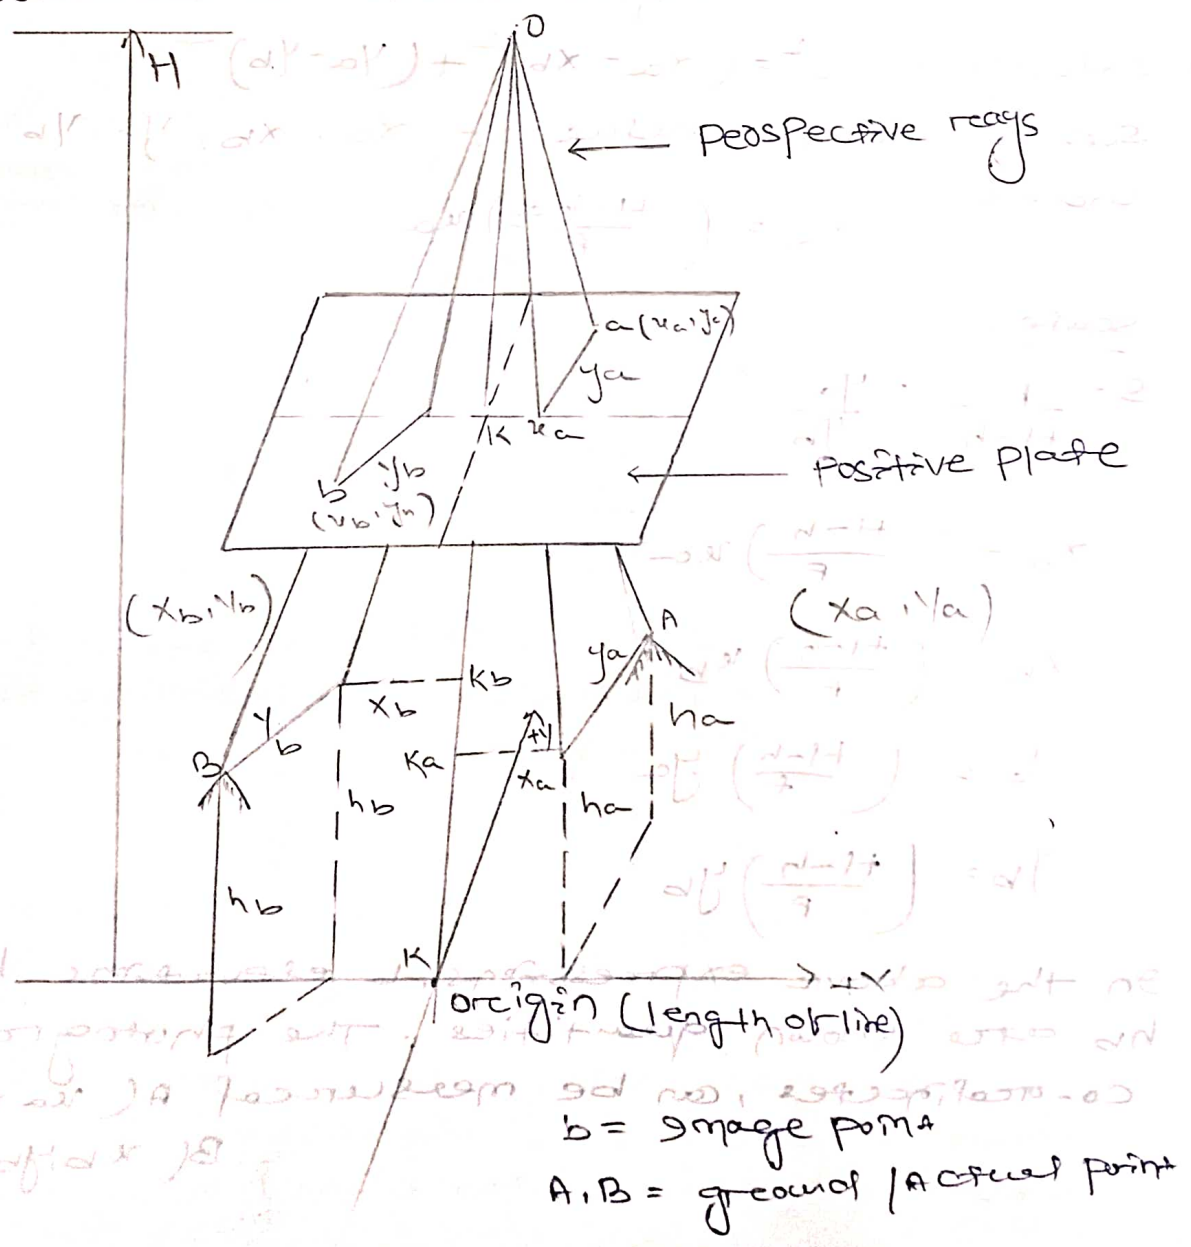 O
H
Peospective reays
a(xa, ya)
ya
K xa
yb
b
Positive Plate
(Xb, Yb)
(Xa, Ya)
A
ya
Kb
Xb
ha
Yb
+Y
B
Ka
Xa
hb
ha
hb
K
+X
orcigin (length of line)
b = image point
A, B = greound / Actual point